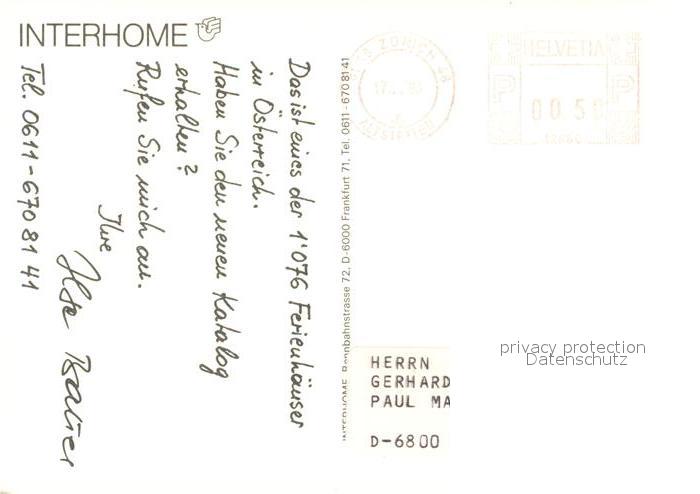 INTERHOME
Das ist eines der 1'076 Ferienhäuser
in Österreich.
Haben Sie den neuen Katalog
erhalten?
Rufen Sie mich an.
Ihre
Ilse Bauer
Tel. 0611-670 81 41
INTERHOME, Rennbahnstrasse 72, D-6000 Frankfurt 71, Tel. 0611 - 670 81 41
ZÜRICH 48
ALTSTETTEN
HELVETIA
P P
00.50
HERRN
GERHARD
PAUL MA
D-6800
privacy protection
Datenschutz